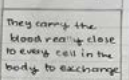 They carry the
blood really close
to every cell in the
body to exchange